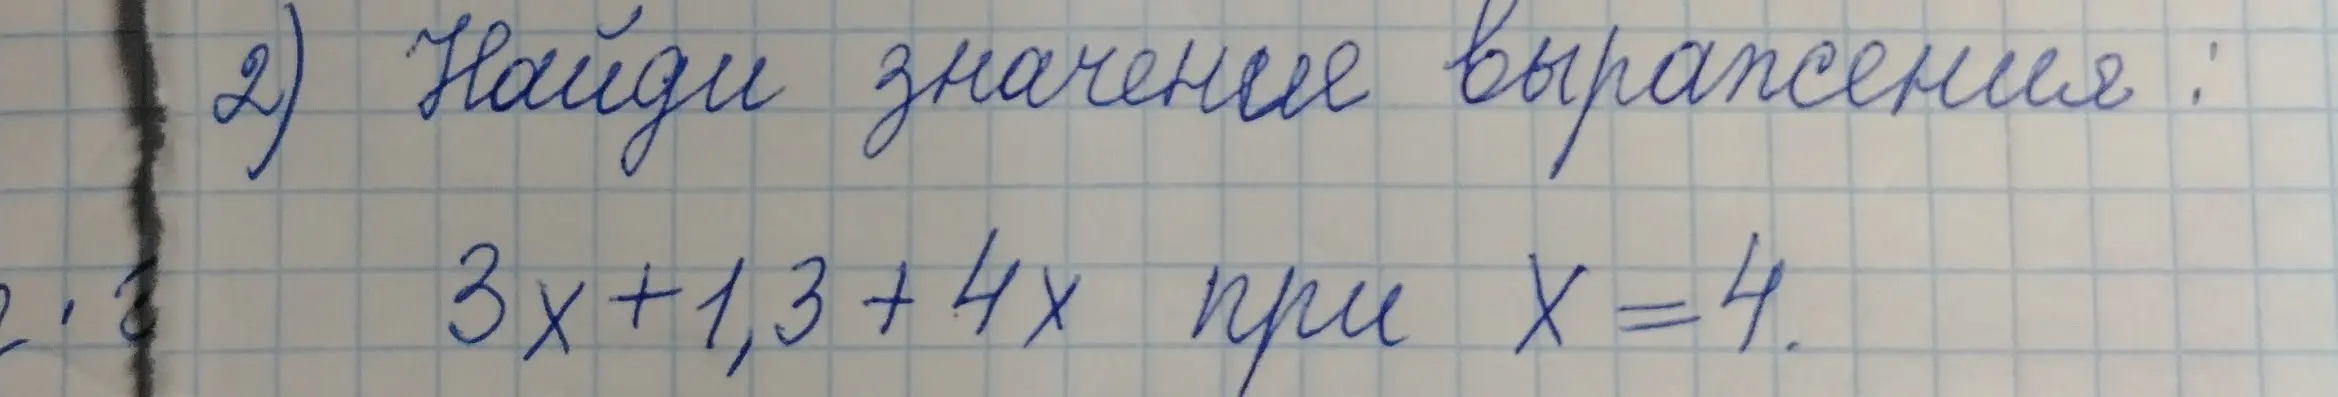 2) Найди значение выражения:
3x+1,3+4x при x=4.